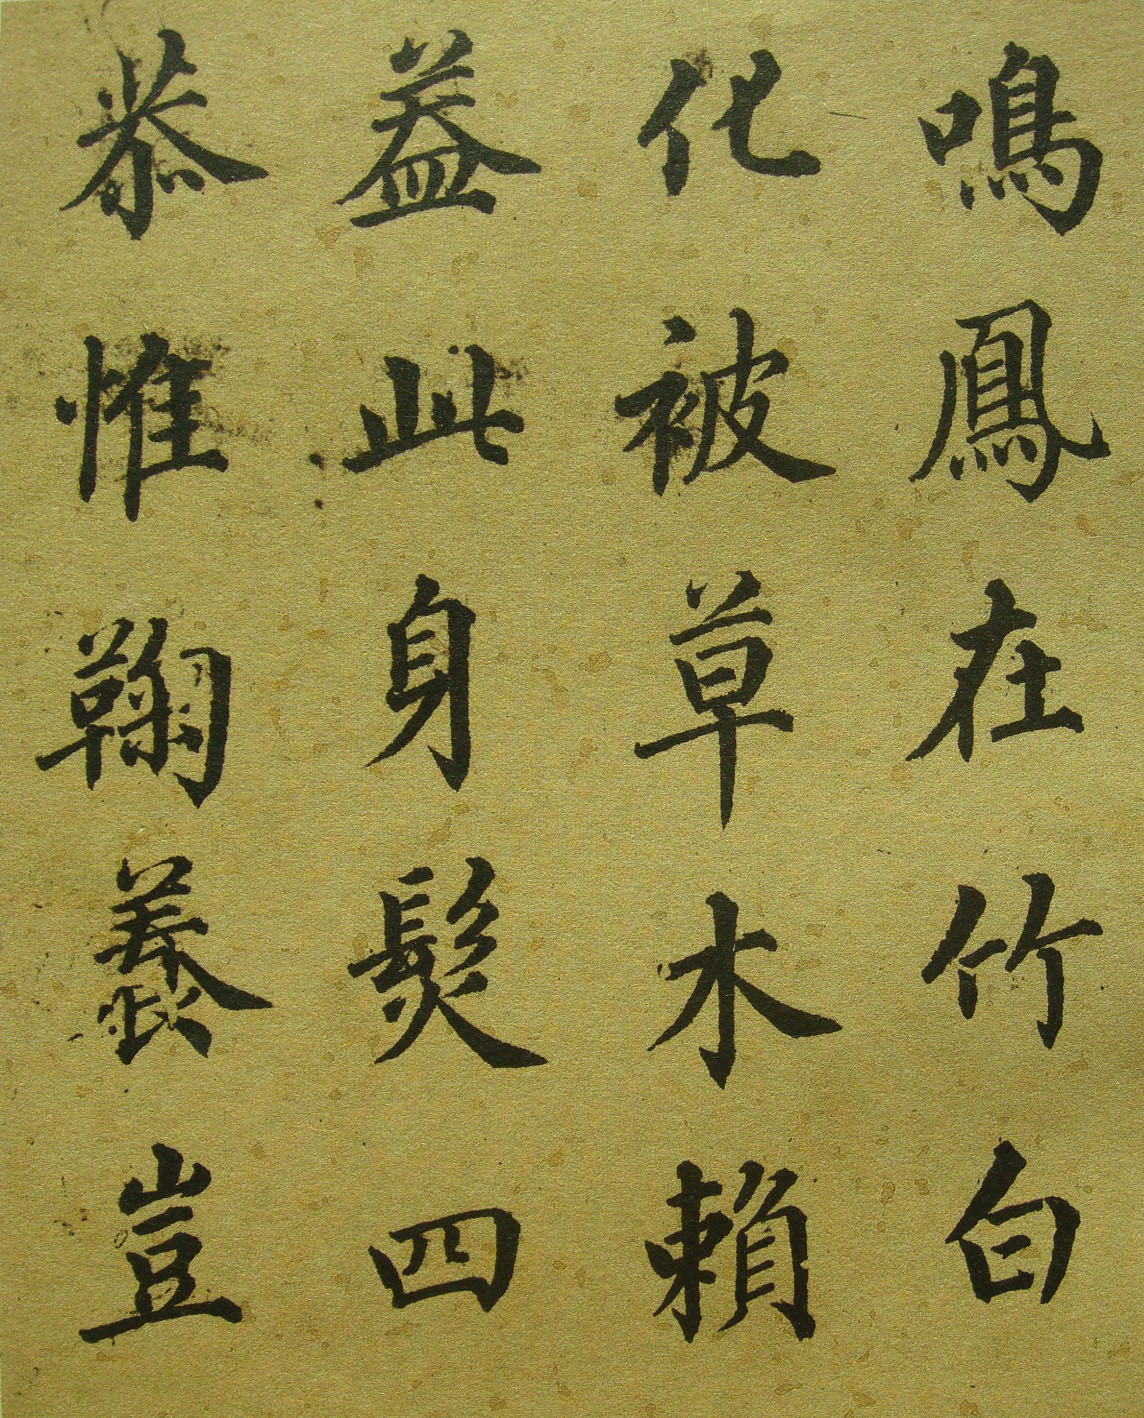 鳴鳳在竹白
化被草木賴
蓋此身髮四
恭惟鞠養豈